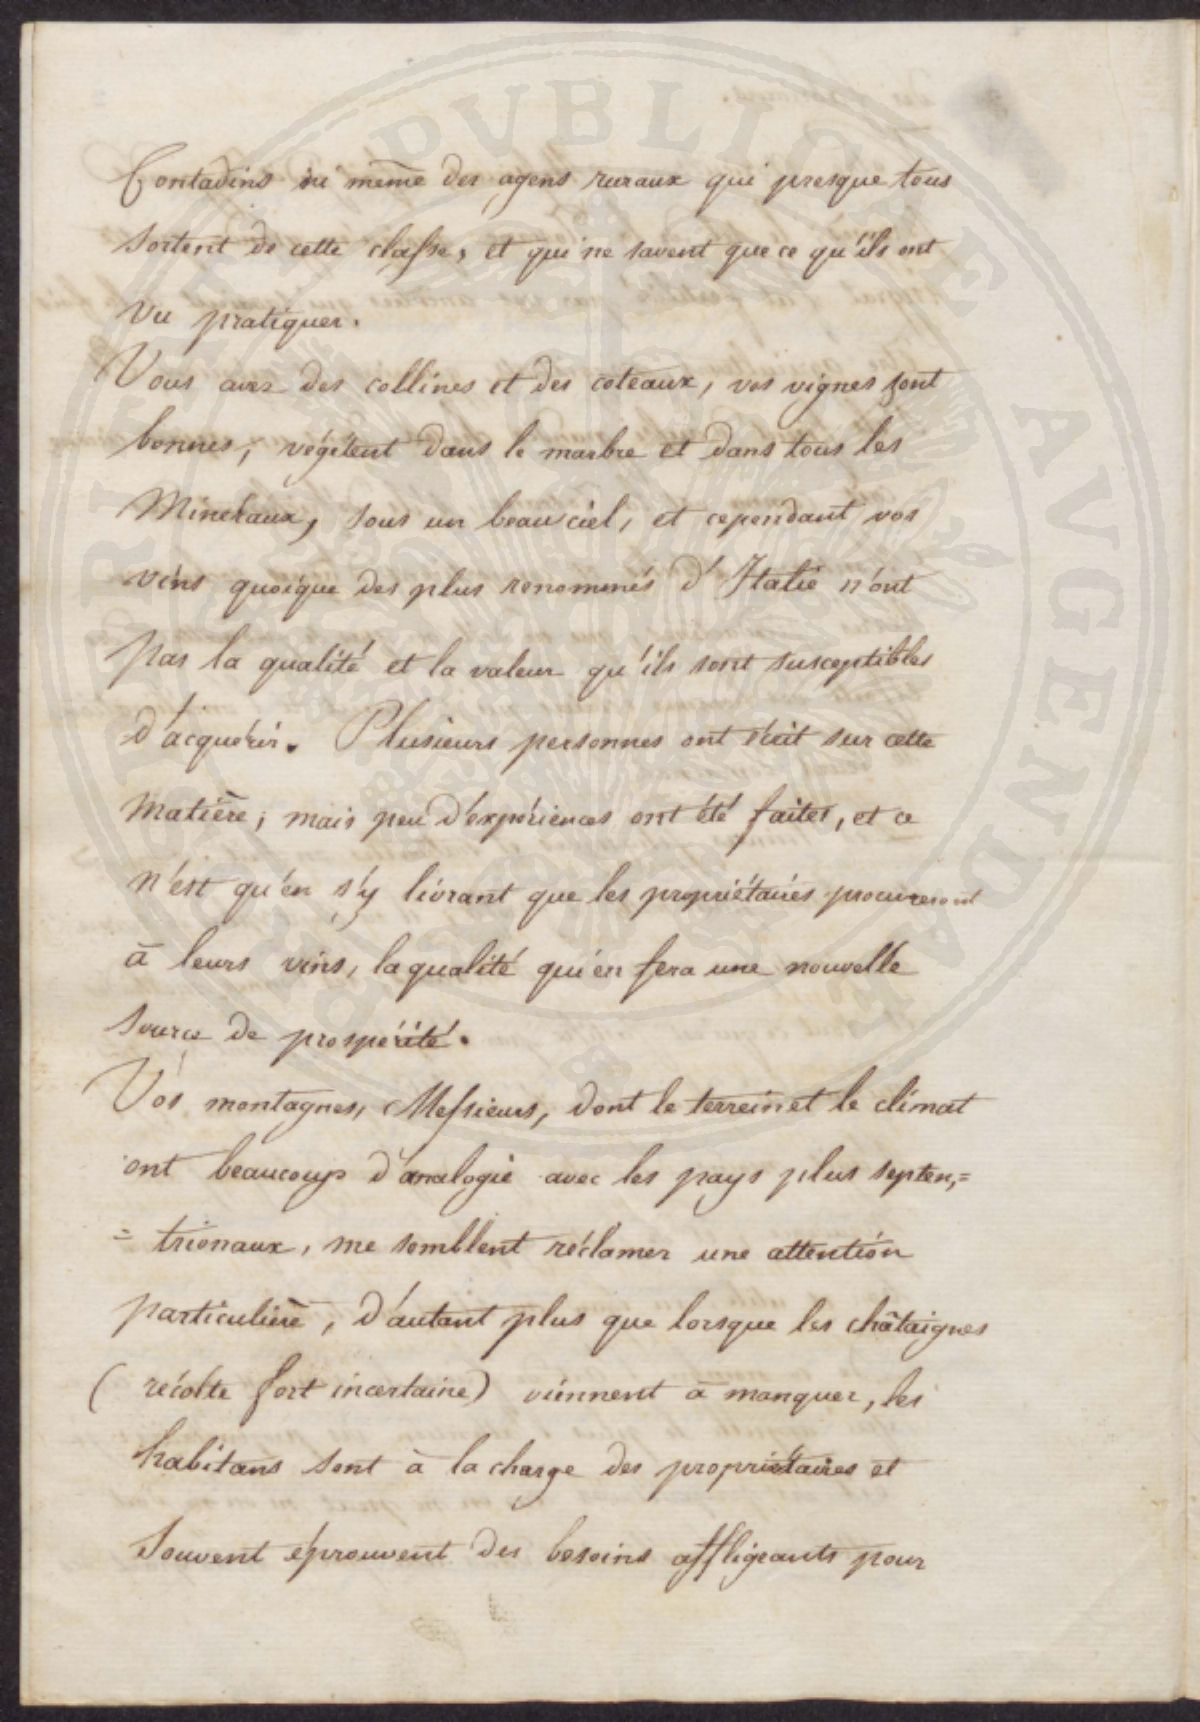 Contadins ni même des agens ruraux qui presque tous
sortent de cette classe, et qui ne savent que ce qu'ils ont
vu pratiquer.
Vous avez des collines et des coteaux, vos vignes sont
bonnes, végétent dans le marbre et dans tous les
Minéraux, sous un beau ciel, et cependant vos
vins quoique des plus renommés d'Italie n'ont
pas la qualité et la valeur qu'ils sont susceptibles
d'acquérir. Plusieurs personnes ont écrit sur cette
matière; mais peu d'expériences ont été faites, et ce
n'est qu'en s'y livrant que les propriétaires procureront
à leurs vins, la qualité qui en fera une nouvelle
source de prospérité.
Vos montagnes, Messieurs, dont le terrein et le climat
ont beaucoup d'analogie avec les pays plus septen,=
=trionaux, me semblent réclamer une attention
particulière, d'autant plus que lorsque les châtaignes
(récolte fort incertaine) viennent à manquer, les
habitans sont à la charge des propriétaires et
souvent éprouvent des besoins affligeants pour